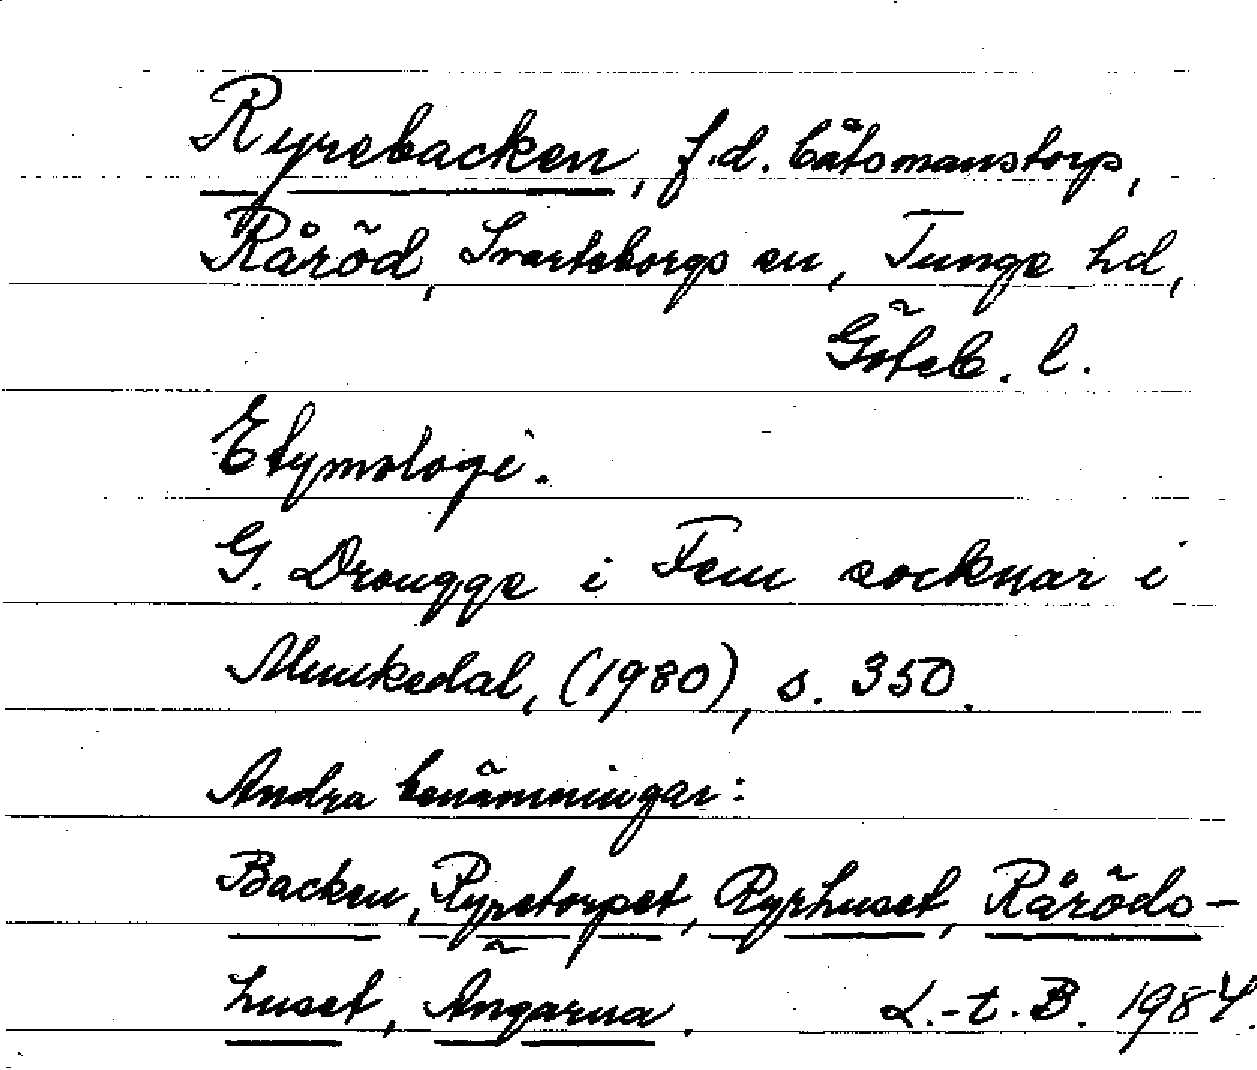 Ryrebacken, f.d. båtsmanstorp,
Råröd, Svarteborgs sn, Tunge hd,
Göteb. l.
Etymologi.
G. Drougge i Fem socknar i
Munkedal, (1980), s. 350.
Andra benämningar:
Backen, Ryretorpet, Ryrhuset, Råröds-
huset, Ängarna. L.-t. B. 1984.